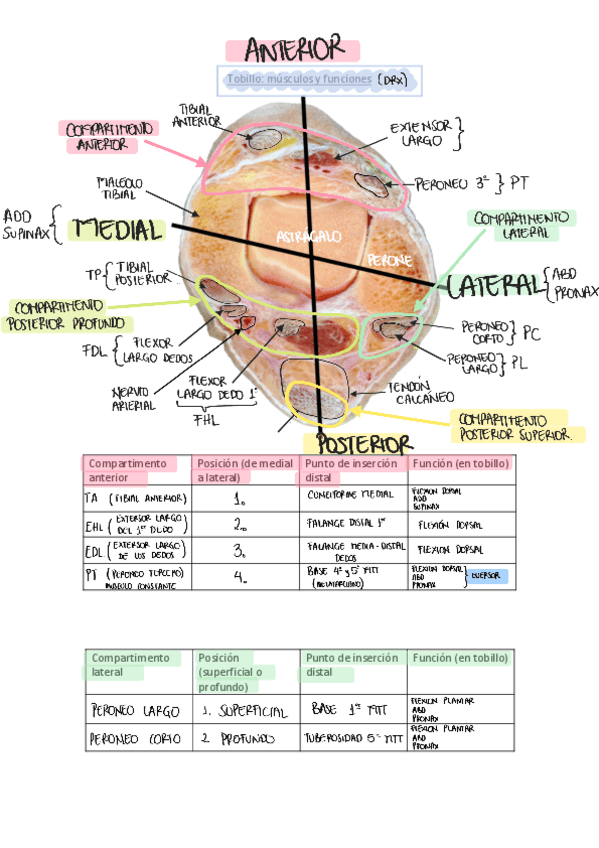 ANTERIOR
Tobillo: músculos y funciones (DRX)
TIBIAL
ANTERIOR
COMPARTIMENTO
ANTERIOR
EXTENSOR
LARGO
MALEOLO
TIBIAL
PERONEO 3º } PT
ADD
SUPINAX
MEDIAL
COMPARTIMENTO
LATERAL
ASTRÁGALO
PERONE
TP { TIBIAL
POSTERIOR
LATERAL
ABD
PRONAX
COMPARTIMENTO
POSTERIOR PROFUNDO
PERONEO
CORTO } PC
FDL { FLEXOR
LARGO DEDOS
PERONEO
LARGO } PL
NERVIO
ARTERIAL
FLEXOR
LARGO DEDO 1º
FHL
TENDÓN
CALCÁNEO
COMPARTIMENTO
POSTERIOR SUPERIOR.
POSTERIOR
Compartimento
anterior
Posición (de medial
a lateral)
Punto de inserción
distal
Función (en tobillo)
TA (TIBIAL ANTERIOR)
1.
CUNEIFORME MEDIAL
FLEXION DORSAL
ADD
SUPINAX
EHL (EXTENSOR LARGO
DEL 1º DEDO)
2.
FALANGE DISTAL 1º
FLEXIÓN DORSAL
EDL (EXTENSOR LARGO
DE LOS DEDOS)
3.
FALANGE MEDIA-DISTAL
DEDOS
FLEXION DORSAL
PT (PERONEO TERCERO)
MUSCULO CONSTANTE
4.
BASE 4º y 5º MTT
(METATARSIANO)
FLEXION DORSAL
ABD
PRONAX
EVERSOR
Compartimento
lateral
Posición
(superficial o
profundo)
Punto de inserción
distal
Función (en tobillo)
PERONEO LARGO
1. SUPERFICIAL
BASE 1er MTT
FLEXION PLANTAR
ABD
PRONAX
PERONEO CORTO
2. PROFUNDO
TUBEROSIDAD 5º MTT
FLEXION PLANTAR
ABD
PRONAX